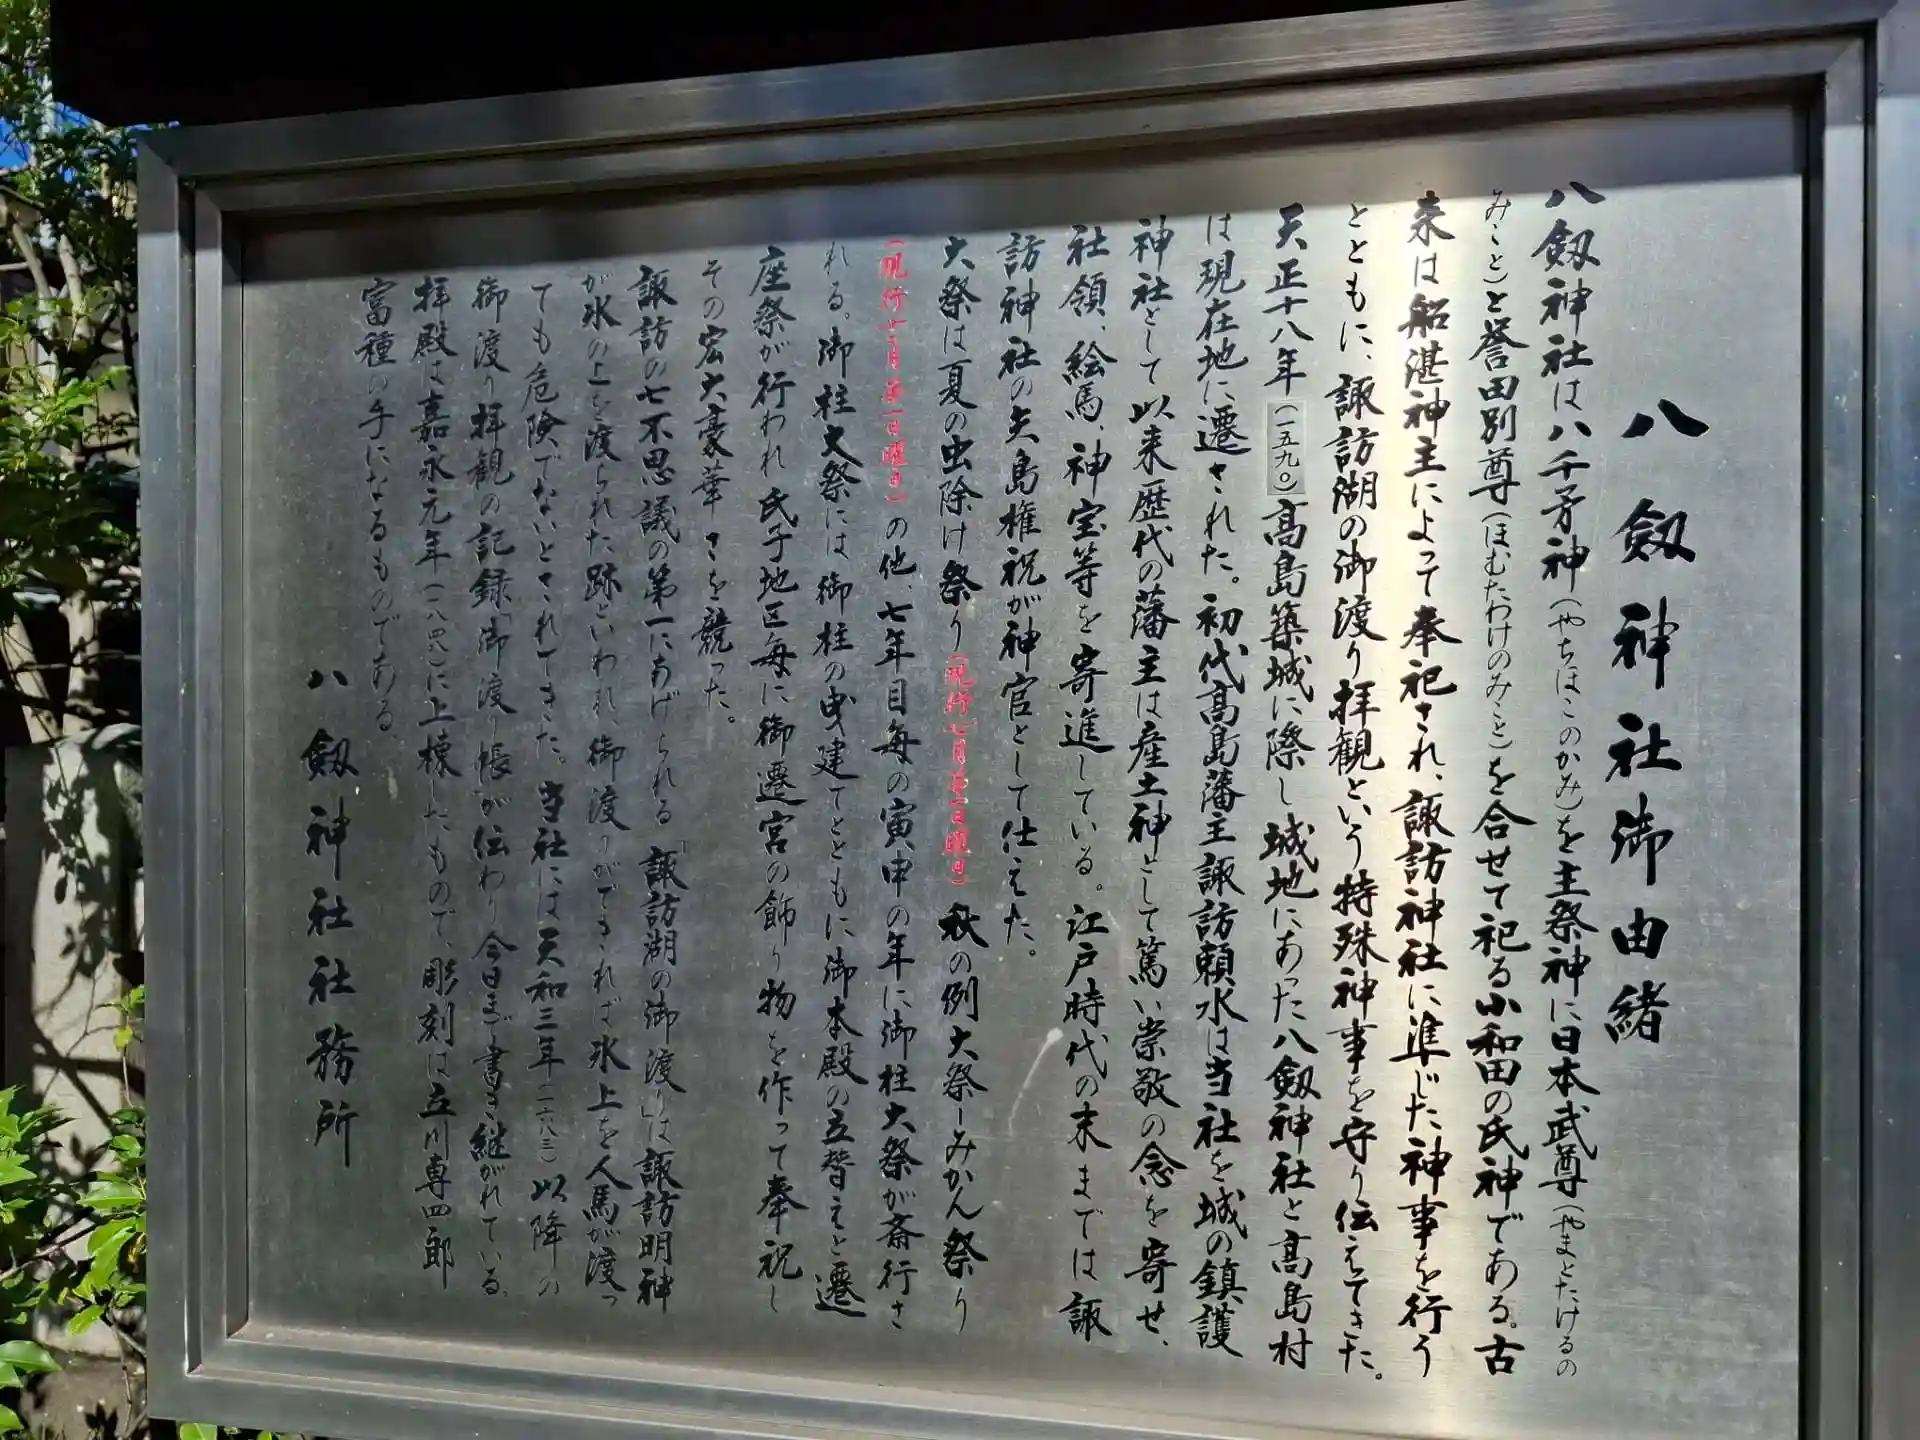 八剱神社御由緒
八剱神社は八千矛神(やちほこのかみ)を主祭神に日本武尊(やまとたけるの
みこと)と誉田別尊(ほむたわけのみこと)を合せて祀る小和田の氏神である。古
来は船湛神主によって奉祀され、諏訪神社に準じた神事を行う
とともに、諏訪湖の御渡り拝観という特殊神事を守り伝えてきた。
天正十八年(一五九〇)高島築城に際し城地にあった八剱神社と高島村
は現在地に遷された。初代高島藩主諏訪頼水は当社を城の鎮護
神社として以来歴代の藩主は産土神として篤い崇敬の念を寄せ、
社領、絵馬、神宝等を寄進している。江戸時代の末までは諏
訪神社の矢島権祝が神官として仕えた。
大祭は夏の虫除け祭り(現行七月第一日曜日)秋の例大祭ーみかん祭り
(現行十月第一日曜日)の他、七年目毎の寅申の年に御柱大祭が斎行さ
れる。御柱大祭には御柱の曳建てとともに御本殿の立替えと遷
座祭が行われ氏子地区毎に御遷宮の飾り物を作って奉祝し
その宏大豪華さを競った。
諏訪の七不思議の第一にあげられる「諏訪湖の御渡り」は諏訪明神
が氷の上を渡られた跡といわれ、御渡りができれば氷上を人馬が渡っ
ても危険でないとされてきた。当社には天和三年(一六八三)以降の
御渡り拝観の記録「御渡り帳」が伝わり今日まで書き継がれている。
拝殿は嘉永元年(一八四八)に上棟したもので、彫刻は立川専四郎
富種の手になるものである。
八剱神社社務所